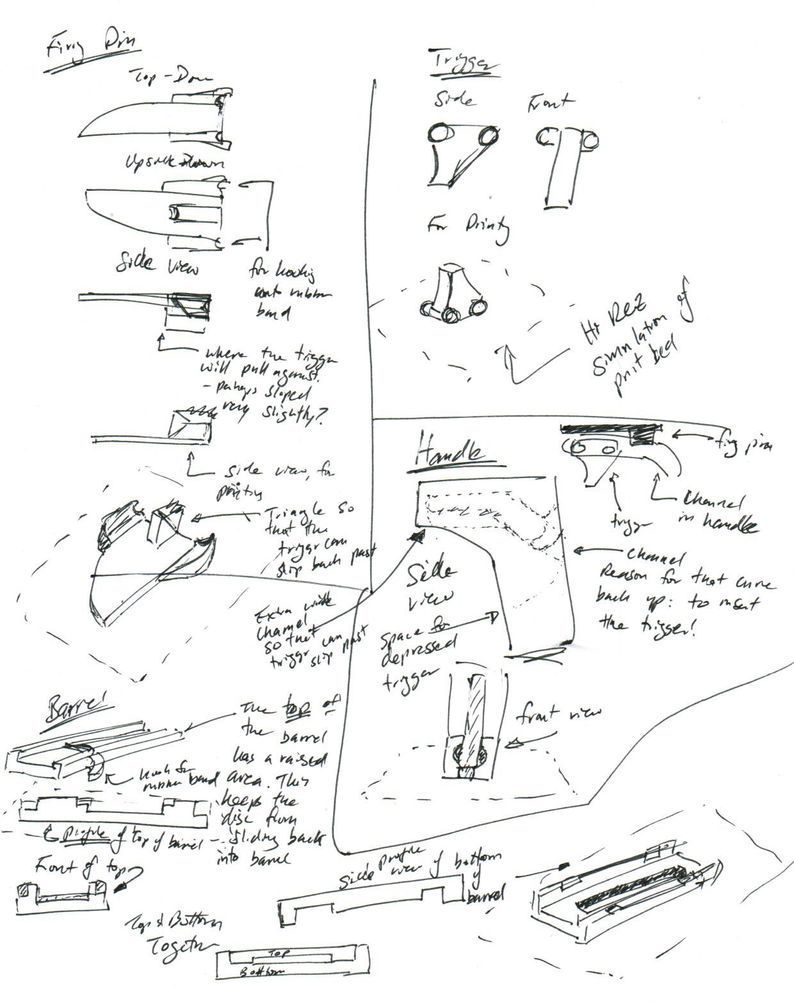 Firing Pin
Top-Down
Upside Down
Side View
for hooking
onto rubber
band
where the trigger
will pull against.
- perhaps sloped
very slightly?
side view, for
printing
Triangle so
that the
trigger can
slip back past
Extra wide
channel
so that
trigger can
slip past
Trigger
Side
Front
For Printing
Hi Rez
simulation of
print bed
Handle
firing pin
trigger
channel
in handle
channel
Reason for that curve
back up: to insert
the trigger!
Side
view
space for
depressed
trigger
front view
Barrel
hook for
rubber band
The top of
the barrel
has a raised
area. This
keeps the
disc from
sliding back
into barrel
Profile of top of barrel
Front of top
Side profile
view of bottom
of
barrel
Top & Bottom
Together
Top
Bottom